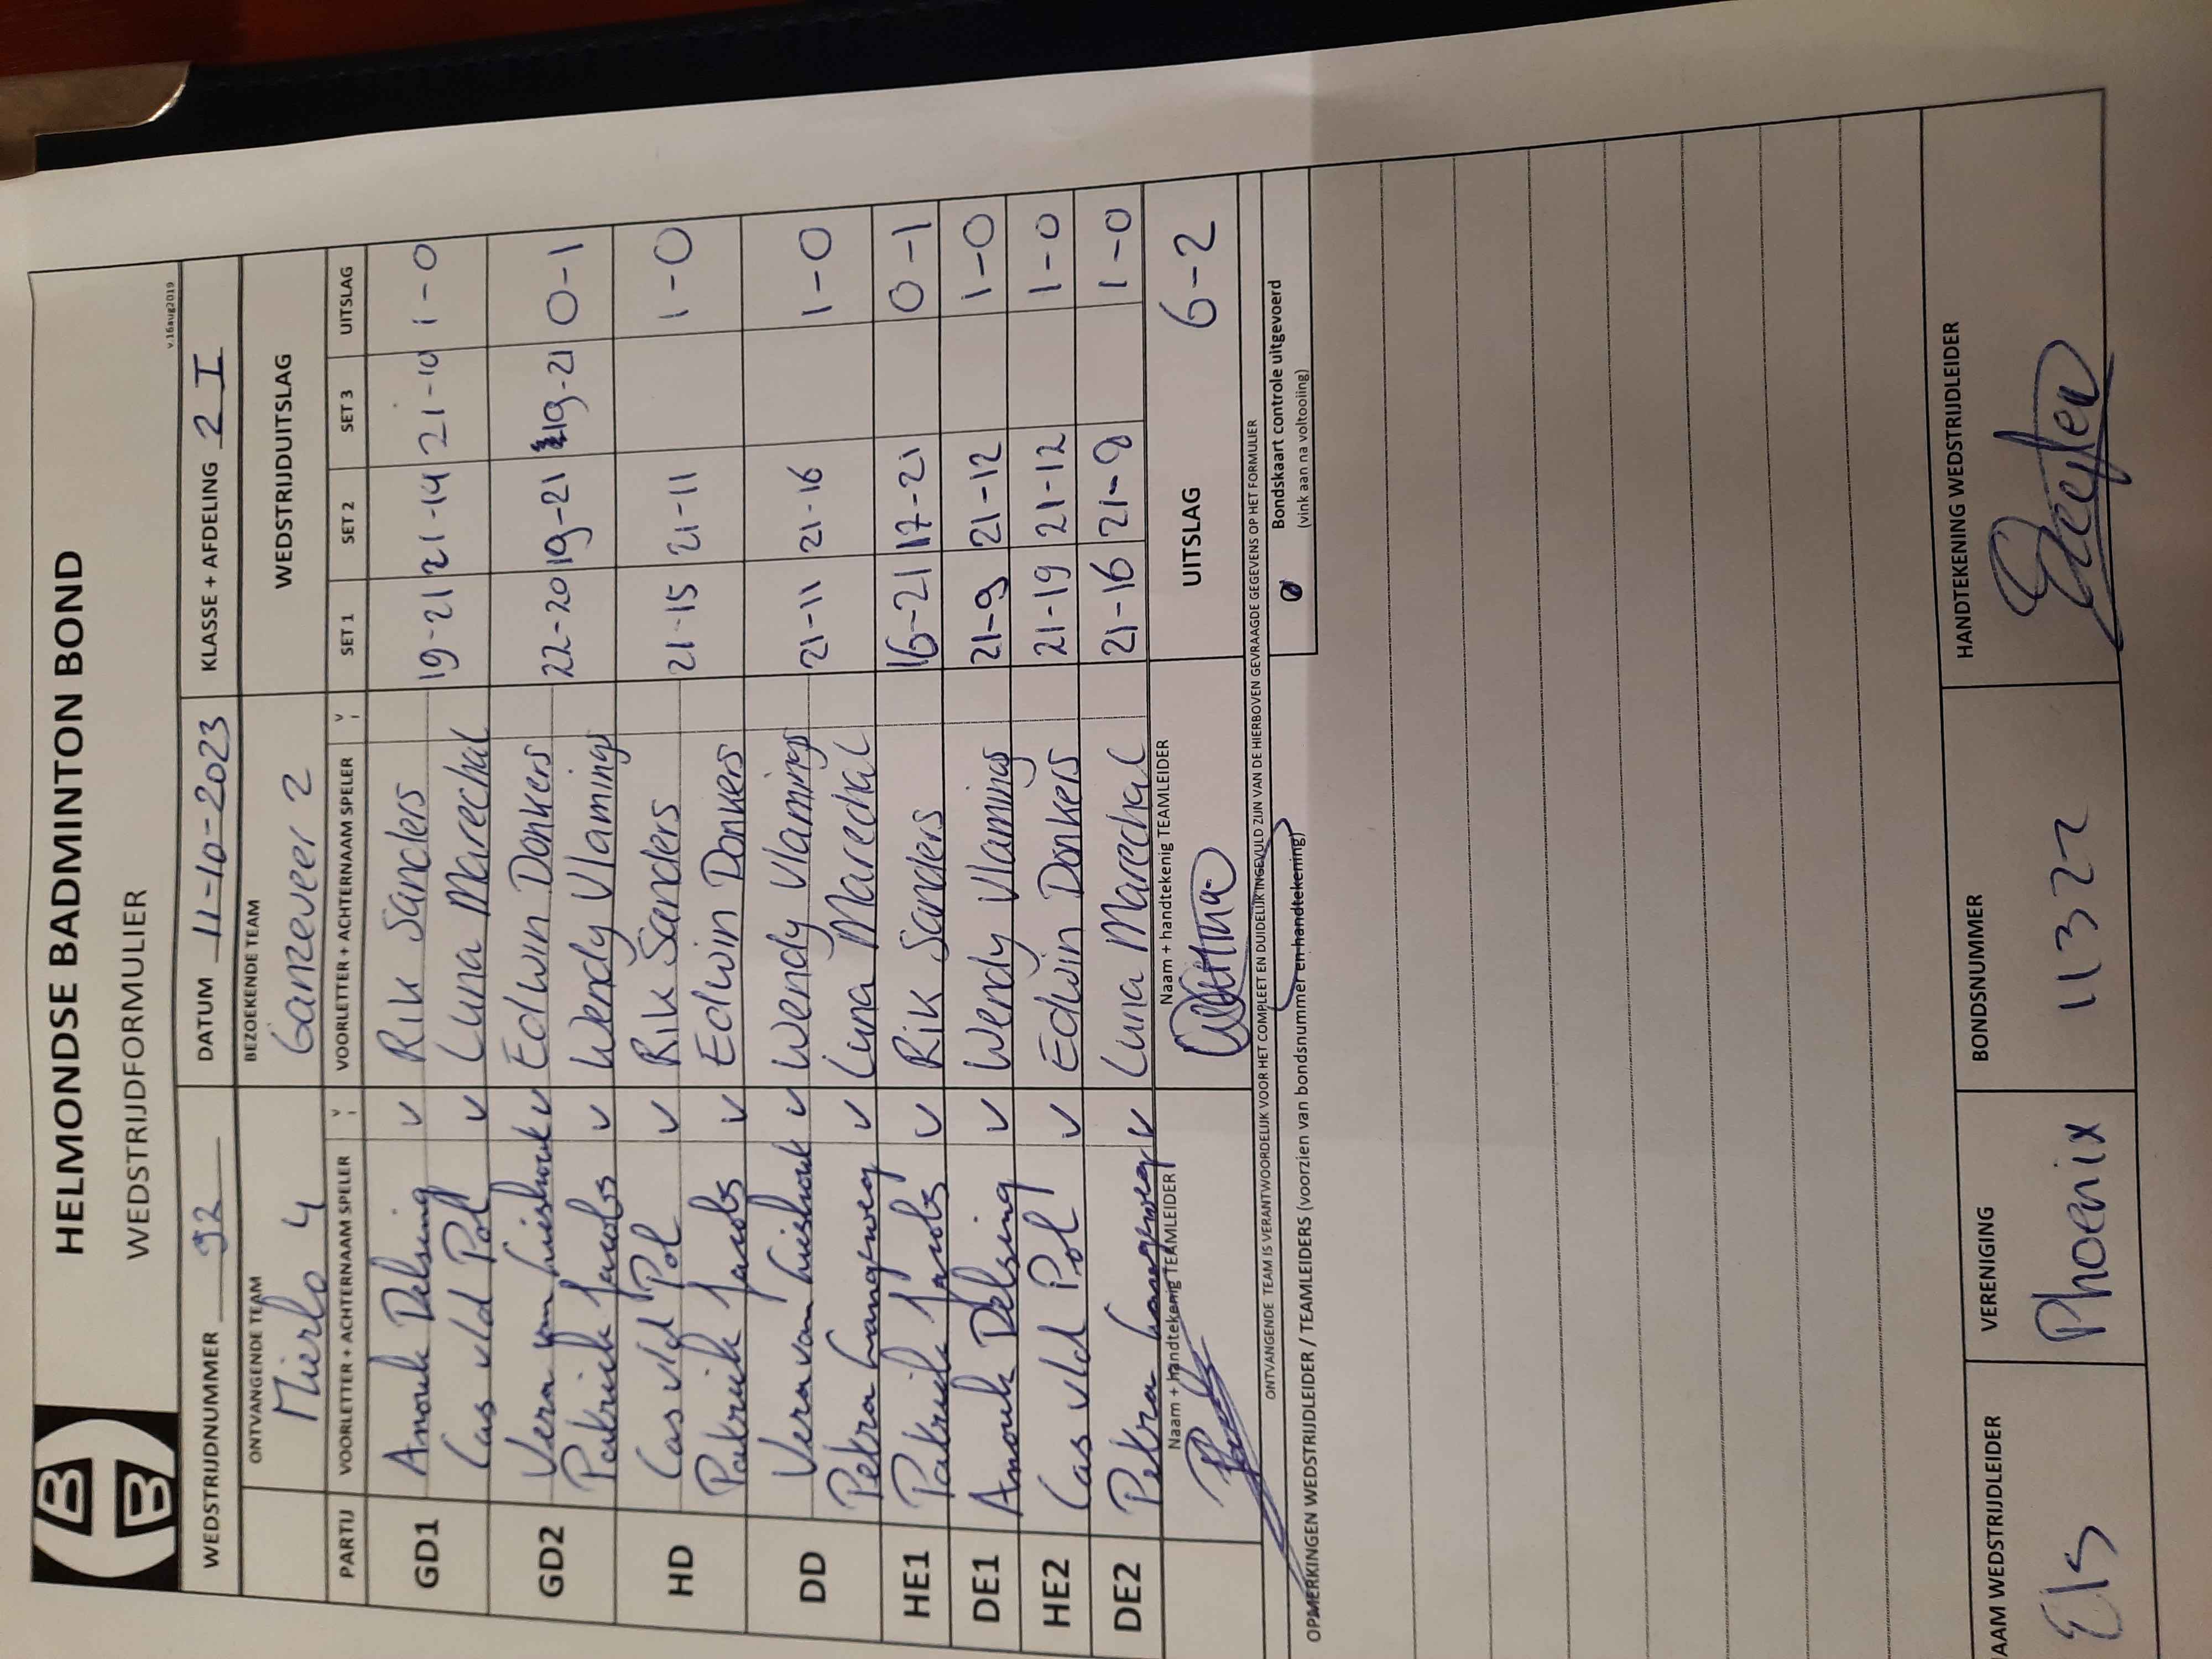 HELMONDSE BADMINTON BOND
WEDSTRIJDFORMULIER
v.16aug2019
WEDSTRIJDNUMMER 92 DATUM 11-10-2023 KLASSE + AFDELING 2 I
ONTVANGENDE TEAM BEZOEKENDE TEAM WEDSTRIJDUITSLAG
Mierlo 4 Ganzeveer 2
PARTIJ VOORLETTER + ACHTERNAAM SPELER V VOORLETTER + ACHTERNAAM SPELER V SET 1 SET 2 SET 3 UITSLAG
GD1 Anouk Delsing v Rik Sanders 19-21 21-14 21-10 1-0
Cas v/d Pol v Luna Marechal
GD2 Vera van Lieshout v Edwin Donkers 22-20 19-21 19-21 0-1
Patrick Jacobs v Wendy Vlamings
HD Cas v/d Pol v Rik Sanders 21-15 21-11 1-0
Patrick Jacobs v Edwin Donkers
DD Vera van Lieshout v Wendy Vlamings 21-11 21-16 1-0
Petra Langeweg v Luna Marechal
HE1 Patrick Jacobs v Rik Sanders 16-21 17-21 0-1
DE1 Anouk Delsing v Wendy Vlamings 21-9 21-12 1-0
HE2 Cas v/d Pol v Edwin Donkers 21-19 21-12 1-0
DE2 Petra Langeweg v Luna Marechal 21-16 21-8 1-0
Naam + handtekenig TEAMLEIDER Naam + handtekenig TEAMLEIDER UITSLAG 6-2
ONTVANGENDE TEAM IS VERANTWOORDELIJK VOOR HET COMPLEET EN DUIDELIJK INGEVULD ZIJN VAN DE HIERBOVEN GEVRAAGDE GEGEVENS OP HET FORMULIER
Bondskaart controle uitgevoerd
(vink aan na voltooiing)
OPMERKINGEN WEDSTRIJDLEIDER / TEAMLEIDERS (voorzien van bondsnummer en handtekening)
AAM WEDSTRIJDLEIDER VERENIGING BONDSNUMMER HANDTEKENING WEDSTRIJDLEIDER
Els Phoenix 11322